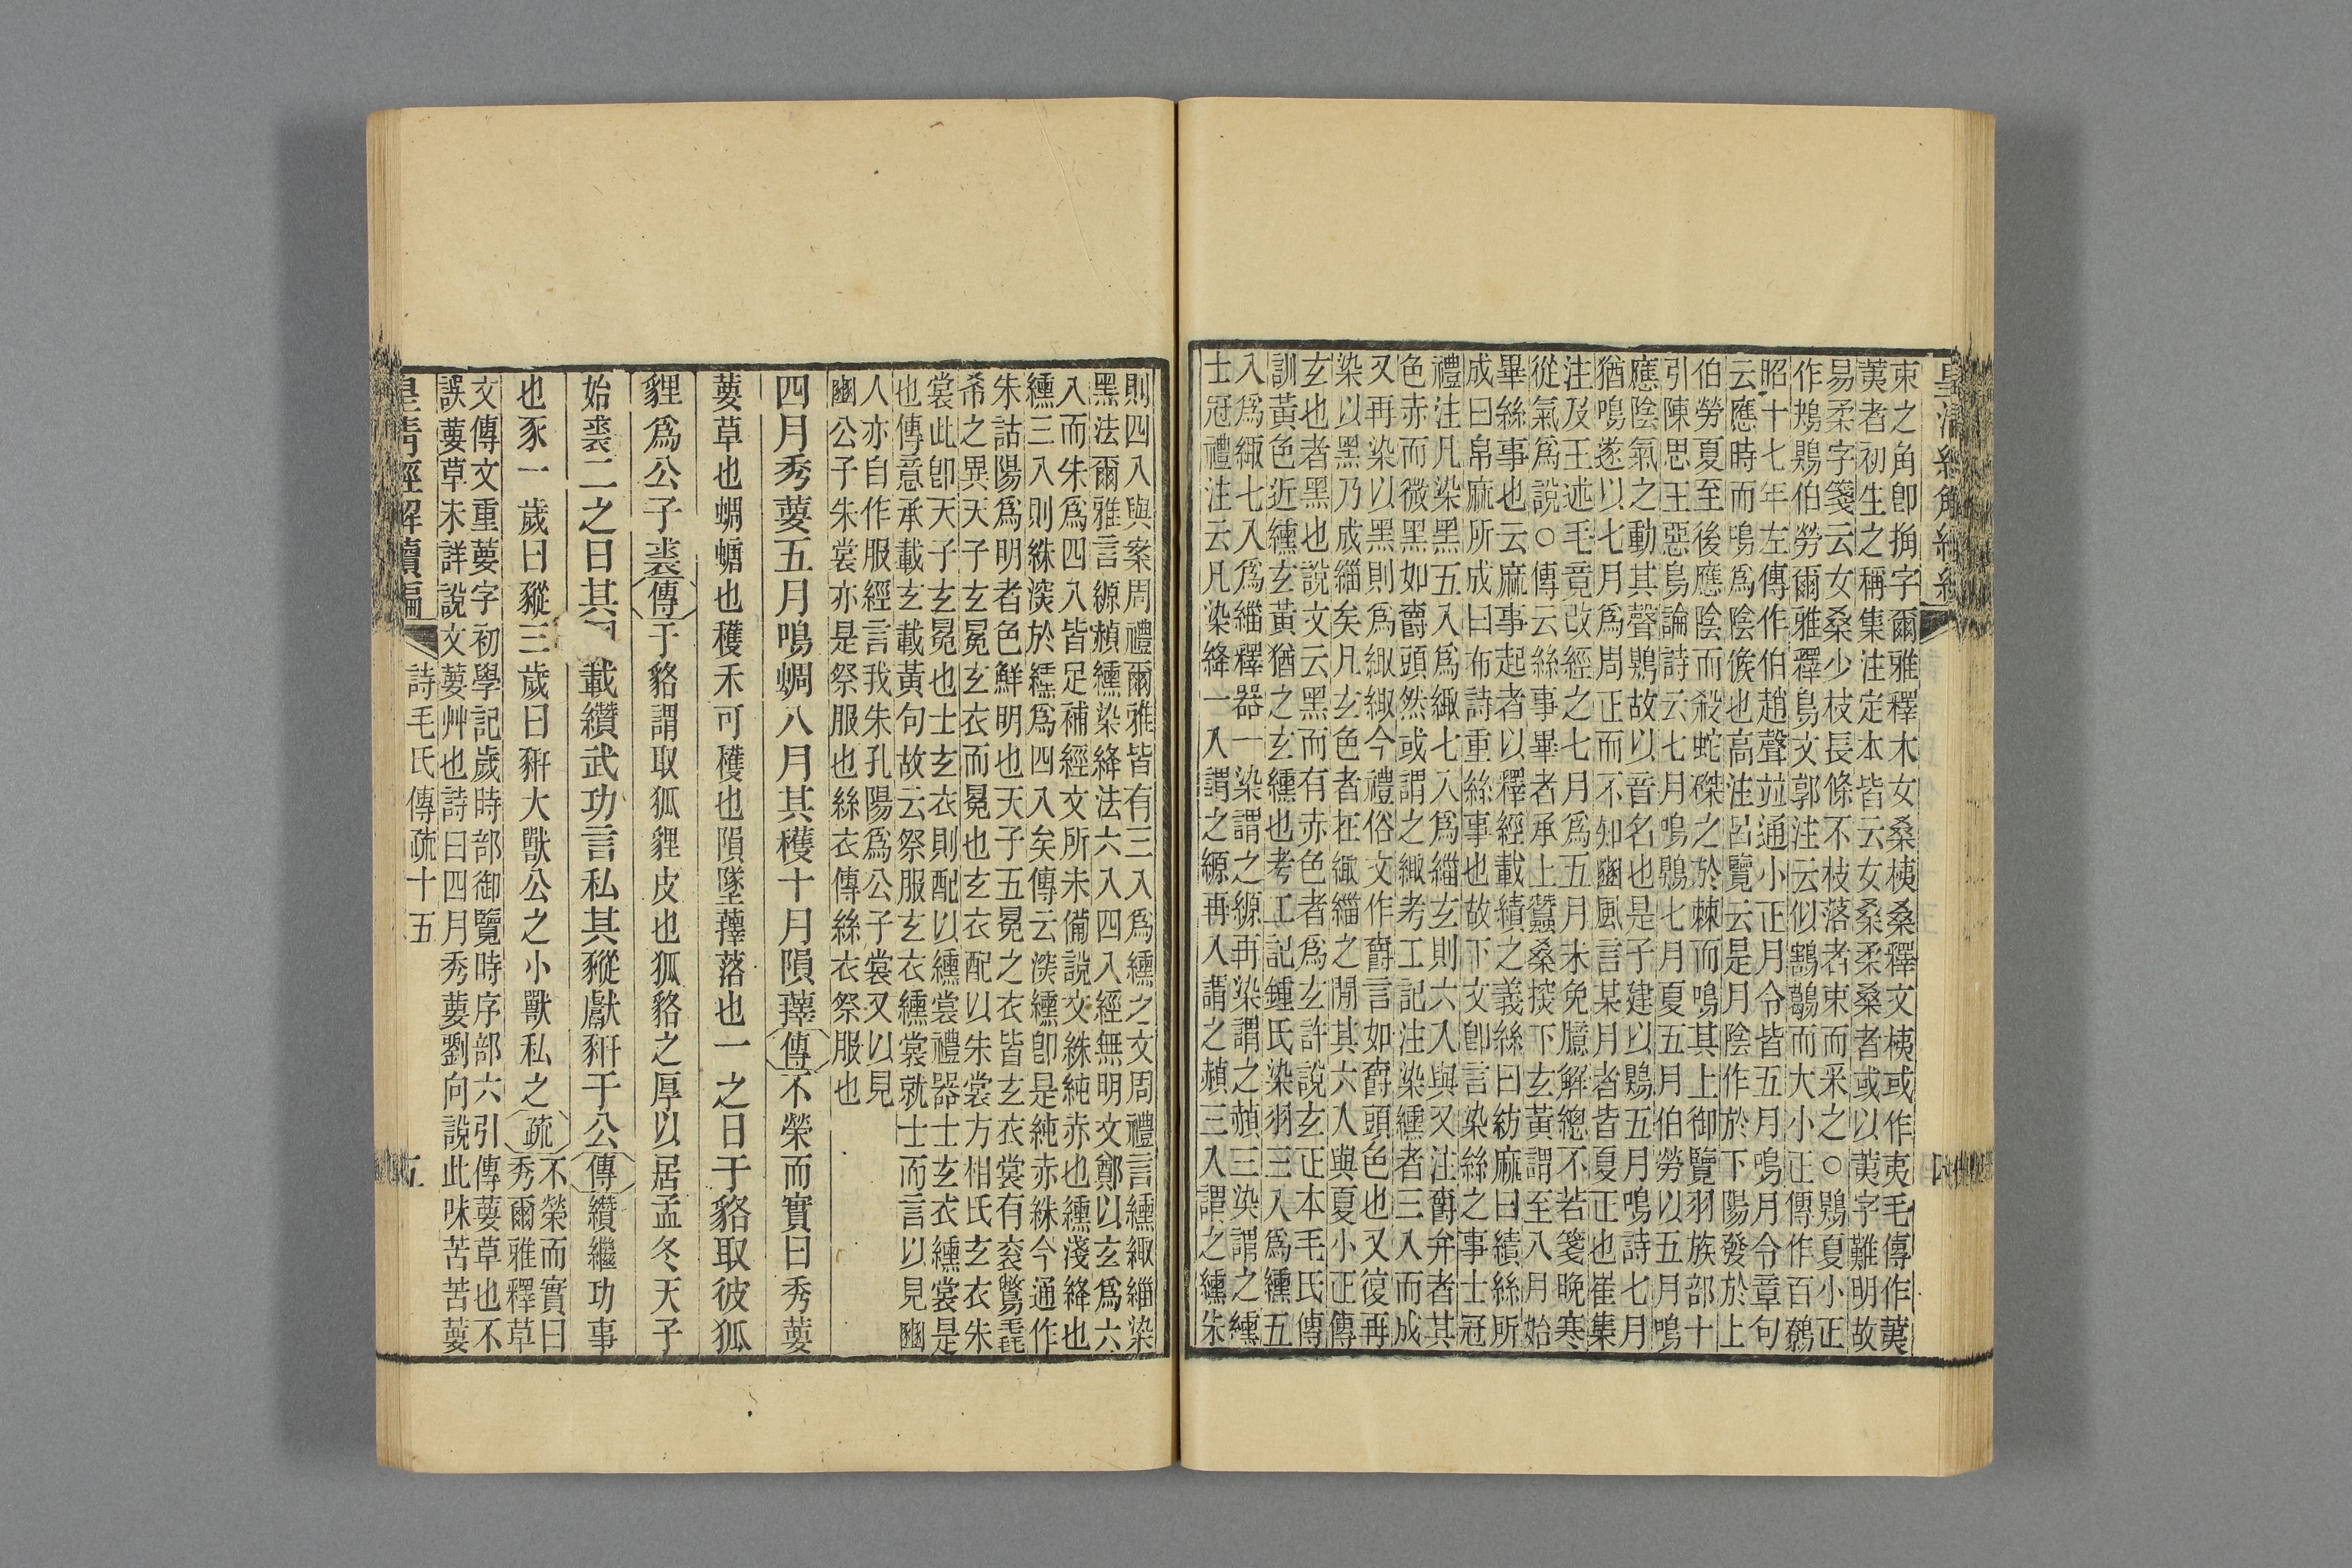 皇清經解續編
束之角卽捔字爾雅釋木女桑桋桑釋文桋或作夷毛傳作荑
荑者初生之稱集注定本皆云女桑柔桑者或以荑字難明故
易柔字箋云女桑少枝長條不枝落者束而采之○鶪夏小正
作鴂鶪伯勞爾雅釋鳥文郭注云似鶷鶡而大小正傳作百鷯
昭十七年左傳作伯趙聲竝通小正月令皆五月鳴月令章句
云應時而鳴爲陰候也高注呂覽云是月陰作於下陽發於上
伯勞夏至後應陰而殺蛇磔之於棘而鳴其上御覽羽族部十
引陳思王惡鳥論詩云七月鳴鶪七月夏五月伯勞以五月鳴
應陰氣之動其聲鶪故以音名也是子建以鶪五月鳴詩七月
猶鳴遂以七月爲周正而不知豳風言某月者皆夏正也崔集
注及王述毛竟改經之七月爲五月未免臆解總不若箋晚寒
從氣爲說○傳云絲事畢者承上蠶桑掟下玄黃謂至八月始
畢絲事也云麻事起者以釋經載績之義絲曰紡麻曰績絲所
成曰帛麻所成曰布詩重絲事也故下文卽言染絲之事士冠
禮注凡染黑五入爲緅七入爲緇玄則六入與又注爵弁者其
色赤而微黑如爵頭然或謂之緅考工記注染纁者三入而成
又再染以黑則爲緅緅今禮俗文作爵言如爵頭色也又復再
染以黑乃成緇矣凡玄色者在緅緇之閒其六入與夏小正傳
玄也者黑也說文云黑而有赤色者爲玄許說玄正本毛氏傳
訓黃色近纁玄黃猶之玄纁也考工記鍾氏染羽三入爲纁五
入爲緅七入爲緇釋器一染謂之縓再染謂之赬三染謂之纁
士冠禮注云凡染絳一入謂之縓再入謂之赬三入謂之纁朱
則四入與案周禮爾雅皆有三入爲纁之文周禮言纁緅緇染
黑法爾雅言縓赬纁染絳法六入四入經無明文鄭以玄爲六
入而朱爲四入皆足補經文所未備說文絑純赤也纁淺絳也
纁三入則絑深於纁爲四入矣傳云深纁卽是純赤絑今通作
朱詁陽爲明者色鮮明也天子五冕之衣皆玄衣裳有衮鷩毳
希之異天子玄冕玄衣而冕也玄衣配以朱裳方相氏玄衣朱
裳此卽天子玄冕也士玄衣則配以纁裳禮器士玄衣纁裳是
也傳意承載玄載黃句故云祭服玄衣纁裳就士而言以見豳
人亦自作服經言我朱孔陽爲公子裳又以見
豳公子朱裳亦是祭服也絲衣傳絲衣祭服也
四月秀葽五月鳴蜩八月其穫十月隕蘀傳不榮而實曰秀葽
葽草也蜩螗也穫禾可穫也隕墜蘀落也一之日于貉取彼狐
貍爲公子裘傳于貉謂取狐貍皮也狐貉之厚以居孟冬天子
始裘二之日其載纘武功言私其豵獻豜于公傳纘繼功事
也豕一歲曰豵三歲曰豜大獸公之小獸私之疏不榮而實曰
秀爾雅釋草
文傳文重葽字初學記歲時部御覽時序部六引傳葽草也不
誤葽草未詳說文葽艸也詩曰四月秀葽劉向說此味苦苦葽
皇清經解續編 詩毛氏傳疏十五 五